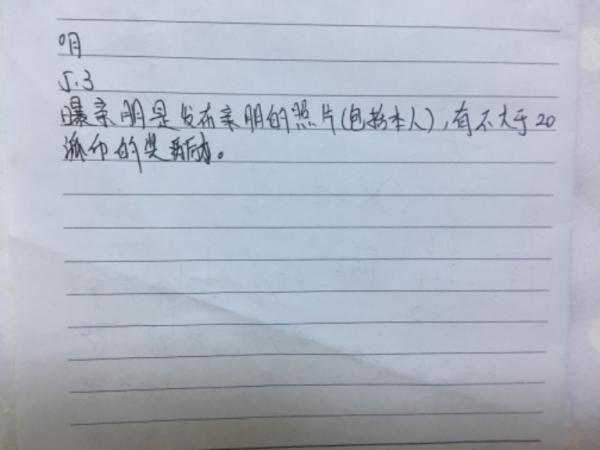 明
5.3
曝亲朋是发布亲朋的照片(包括本人),有不大于20
派币的奖励。